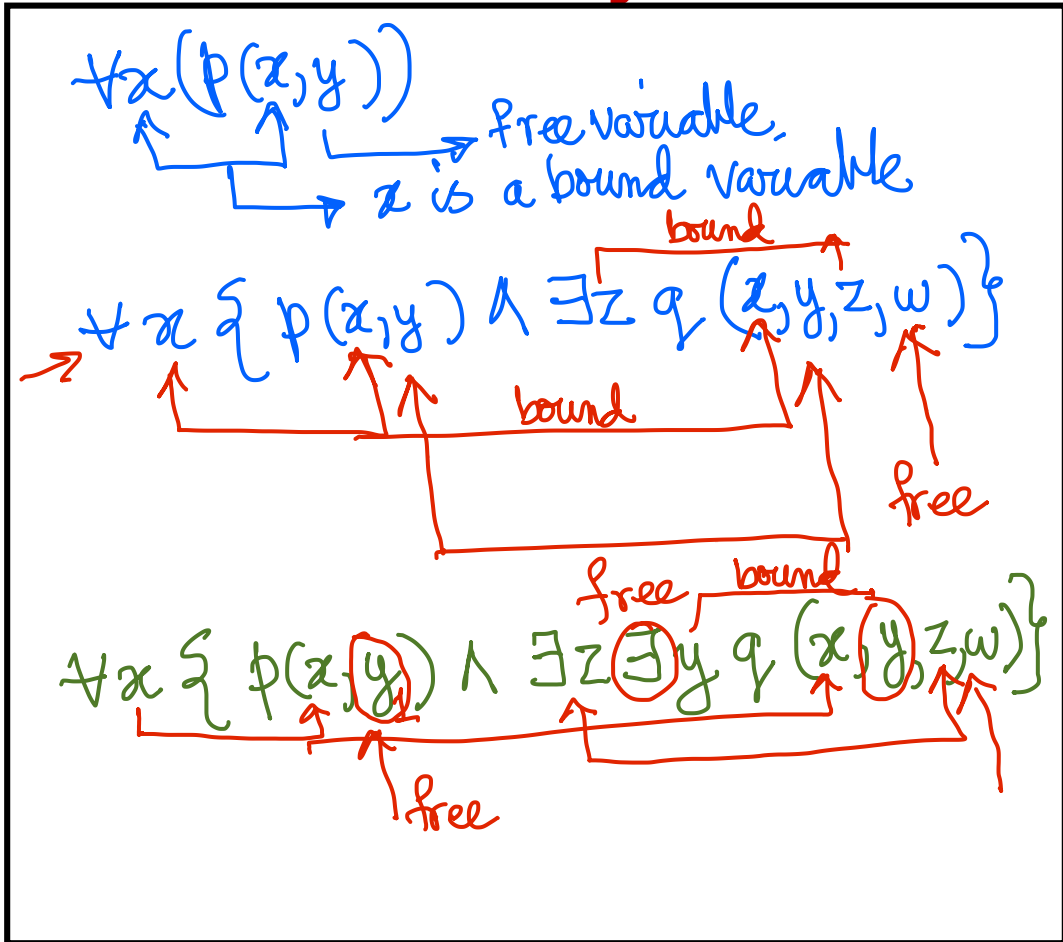 ∀x(p(x,y))
free variable.
x is a bound variable
bound
∀x{p(x,y) ∧ ∃z q(x,y,z,w)}
bound
free
free bound
∀x{p(x,y) ∧ ∃z∃y q(x,y,z,w)}
free